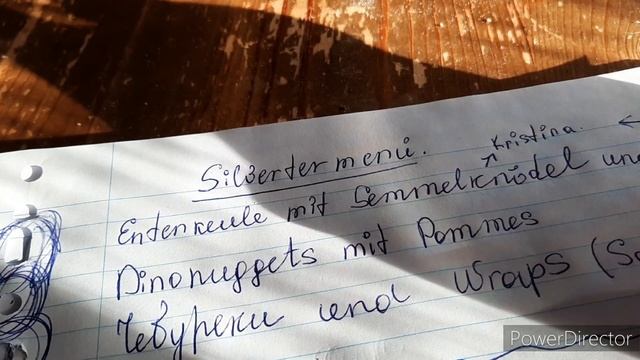 Silvertermenü.
Kristina.
Entenkeule mit Semmelknödel und
Dinonuggets mit Pommes
Чебуреки und Wraps (S
PowerDirector